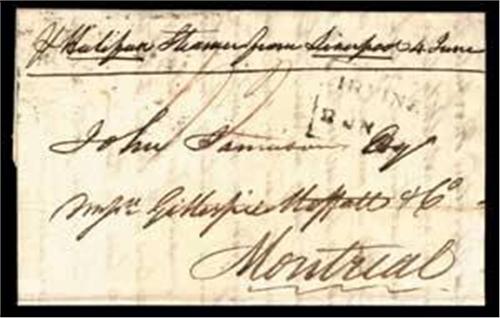 pr Halifax Steamer from Liverpool 4 June
IRVINE
2 JN
John Jamieson Esq
Messrs Gillespie Moffatt & Co
Montreal